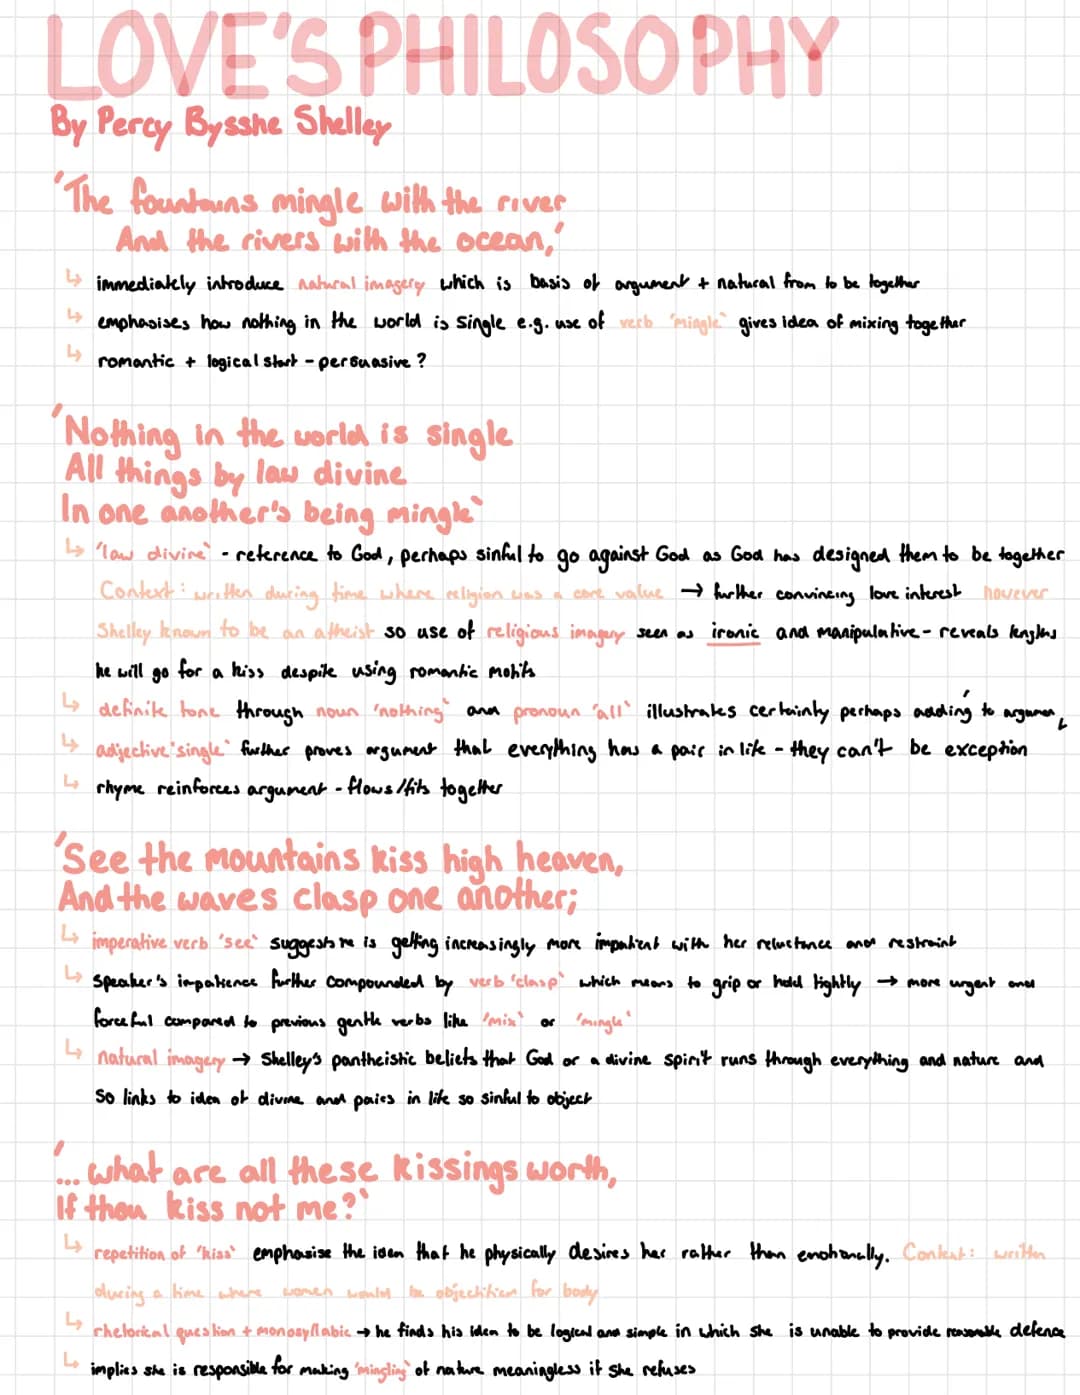 LOVE'S PHILOSOPHY
By Percy Bysshe Shelley
'The fountains mingle with the river
And the rivers with the ocean,'
↳ immediately introduce natural imagery which is basis of argument + natural from to be together
↳ emphasises how nothing in the world is single e.g. use of verb 'mingle' gives idea of mixing together
↳ romantic + logical start - persuasive?
'Nothing in the world is single
All things by law divine
In one another's being mingle'
↳ 'law divine' - reference to God, perhaps sinful to go against God as God has designed them to be together
Context: written during time where religion was a core value → further convincing love interest however
Shelley known to be an atheist so use of religious imagery seen as ironic and manipulative - reveals lengths
he will go for a kiss despite using romantic motifs
↳ definite tone through noun 'nothing' and pronoun 'all' illustrates certainty perhaps adding to argument
↳ adjective 'single' further proves argument that everything has a pair in life - they can't be exception
↳ rhyme reinforces argument - flows/fits together
'See the mountains kiss high heaven,
And the waves clasp one another;
↳ imperative verb 'see' suggests he is getting increasingly more impatient with her reluctance and restraint
↳ Speaker's impatience further compounded by verb 'clasp' which means to grip or hold tightly → more urgent and
forceful compared to previous gentle verbs like 'mix' or 'mingle'
↳ natural imagery → Shelley's pantheistic beliefs that God or a divine spirit runs through everything and nature and
so links to idea of divine and paries in life so sinful to object
'... what are all these kissings worth,
If thou kiss not me?'
↳ repetition of 'kiss' emphasise the idea that he physically desires her rather than emotionally. Context: written
during a time where women would be objectified for body
↳ rhetorical question + monosyllabic → he finds his idea to be logical and simple in which she is unable to provide reasonable defence
↳ implies she is responsible for making 'mingling' of nature meaningless if she refuses